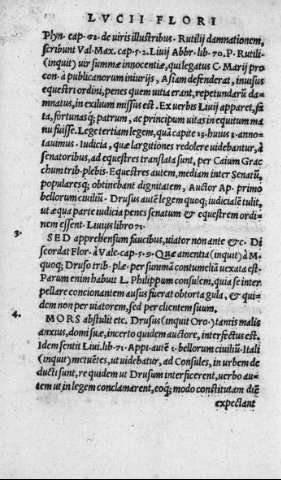 LVCII FLORI
Plyn. cap. 62. de uiris illustribus. Rutilij damnationem,
scribunt Val. Max. cap. 5. 2. Liuij Abbr. lib. 70. P. Rutili-
(inquit) uir summæ innocentiæ, qui legatus C. Marij pro
con. à publicanorum iniurijs, Asiam defenderat, inuisus
equestri ordini, penes quem iudicia erant, repetundarũ da-
mnatus, in exilium missus est. Ex uerbis Liuij apparet, fa
ta, fortunasq; patrum, ac principum uitas in equitum ma
nu fuisse. Lege tertiam legem, quã capite 13. huius 3. anno-
tauimus. Iudicia, quæ largitiones redolere uidebantur, à
senatoribus, ad equestres translata sunt, per Caium Grac
chum trib. plebis. Equestres autem, mediam inter Senatũ,
popularesq; obtinebant dignitatem, Auctor Ap. primo
bellorum ciuiliũ. Drusus autẽ legem quoq; iudicialẽ tulit,
ut æqua parte iudicia penes senatum & equestrem ordi-
nem essent. Liuius libro 71.
3. SED apprehensum faucibus, uiator non ante &c. Di
scordat Flor. à Vale. cap. 9. 5. Quæ amentia (inquit) à M.
quoq; Druso trib. plæ. per summã contumeliã uexata est.
Parum enim habuit L. Philippum consulem, quia se inter
pellare concionantem ausus fuerat obtorta gula, & qui-
dem non per uiatorem, sed per clientem suum.
4. MORS abstulit etc. Drusus (inquit Oro.) tantis malis
anxius, domi suæ, incerto quidem auctore, interfectus est.
Idem sentit Liui. lib. 71. Appi. autẽ 1. bellorum ciuiliũ. Itali
(inquit) metuẽtes, ut uidebatur, ad Consules, in urbem de
ducti sunt, re quidem ut Drusum interficerent, uerbo au-
tem ut in legem conclamarent, eoq; modo constitutam diẽ
expectant